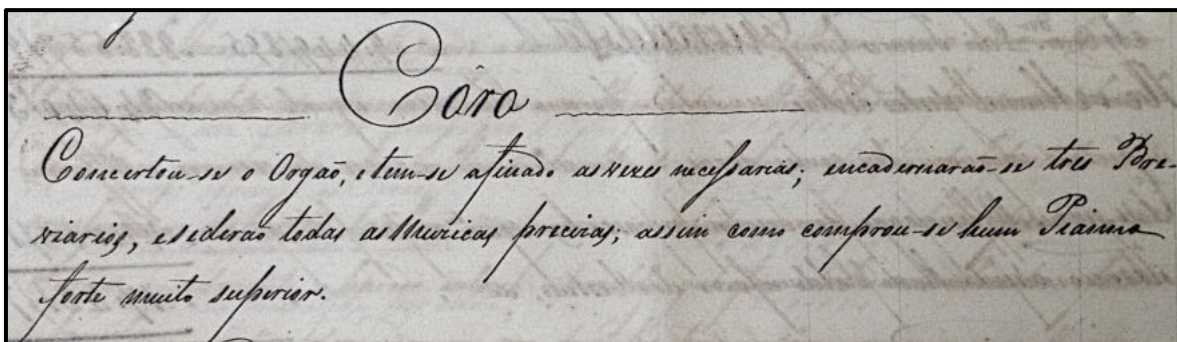 Côro
Concertou-se o Orgaõ, e tem-se afinado as vezes necessarias; encadernaraõ-se tres Bre-
viarios, e se deraõ todas as Muzicas precizas; assim como comprou-se hum Pianno
forte muito superior.